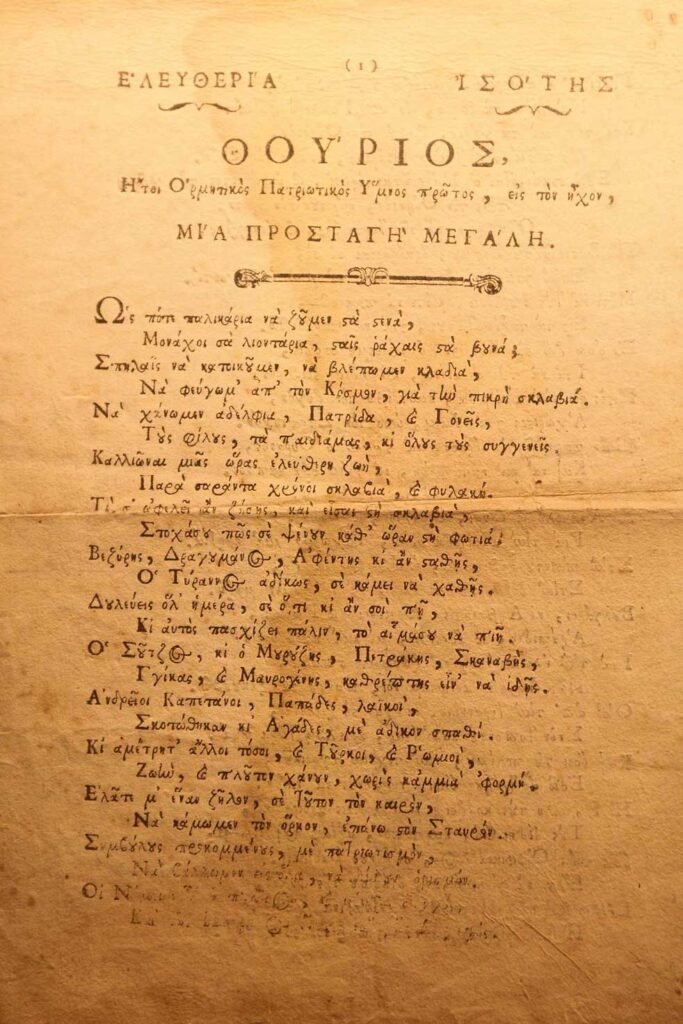 (1)
ἘΛΕΥΘΕΡΊΑ ἸΣΌΤΗΣ
ΘΟΎΡΙΟΣ,
Ἤτοι Ὁρμητικὸς Πατριωτικὸς Ὕμνος πρῶτος, εἰς τὸν ἦχον,
ΜΊΑ ΠΡΟΣΤΑΓῊ ΜΕΓΆΛΗ.
Ὡς πότε παλικάρια νὰ ζοῦμεν στὰ στενὰ,
Μονάχοι σὰ λιοντάρια, σταῖς ῥάχαις στὰ βουνά;
Σπηλαῖς νὰ κατοικοῦμεν, νὰ βλέπωμεν κλαδιὰ,
Νὰ φεύγωμ' ἀπ' τὸν Κόσμον, γιὰ τὴν πικρὴ σκλαβιά.
Νὰ χάνωμεν ἀδέλφια, Πατρίδα, καὶ Γονεῖς,
Τοὺς φίλους, τὰ παιδιάμας, κι ὅλους τοὺς συγγενεῖς.
Καλλιῶναι μιᾶς ὥρας ἐλεύθερη ζωὴ,
Παρὰ σαράντα χρόνοι σκλαβιὰ, καὶ φυλακή.
Τί σ' ὠφελεῖ ἂν ζήσῃς, καὶ εἶσαι στὴ σκλαβιὰ,
Στοχάσου πῶς σὲ ψένουν καθ' ὥραν στὴ φωτιά.
Βεζύρης, Δραγουμάνος, Ἀφέντης κι ἂν σταθῇς,
Ὁ Τύραννος ἀδίκως, σὲ κάμει νὰ χαθῇς.
Δουλεύεις ὅλ' ἡμέρα, σὲ ὅ,τι κι ἂν σοὶ πῇ,
Κι αὐτὸς πασχίζει πάλιν, τὸ αἷμάσου νὰ πιῇ.
Ὁ Σοῦτζος, κι ὁ Μουρούζης, Πετράκης, Σκαναβῆς,
Γγίκας, καὶ Μαυρογένης, καθρέπτης εἶν' νὰ ἰδῇς.
Ἀνδρεῖοι Καπετάνοι, Παπάδες, λαϊκοὶ,
Σκοτώθηκαν κι Ἀγάδες, μὲ ἄδικον σπαθί.
Κι ἀμέτρητ' ἄλλοι τόσοι, καὶ Τοῦρκοι, καὶ Ῥωμιοὶ,
Ζωὴν, καὶ πλοῦτον χάνουν, χωρὶς κάμμιὰ 'φορμή.
Ἐλᾶτε μ' ἕναν ζῆλον, σὲ τοῦτον τὸν καιρὸν,
Νὰ κάμωμεν τὸν ὅρκον, ἐπάνω στὸν Σταυρόν.
Συμβούλους προκομμένους, μὲ πατριωτισμὸν,
Νὰ βάλλωμεν εἰς ὅλα, νὰ ὁρισμόν.
Οἱ